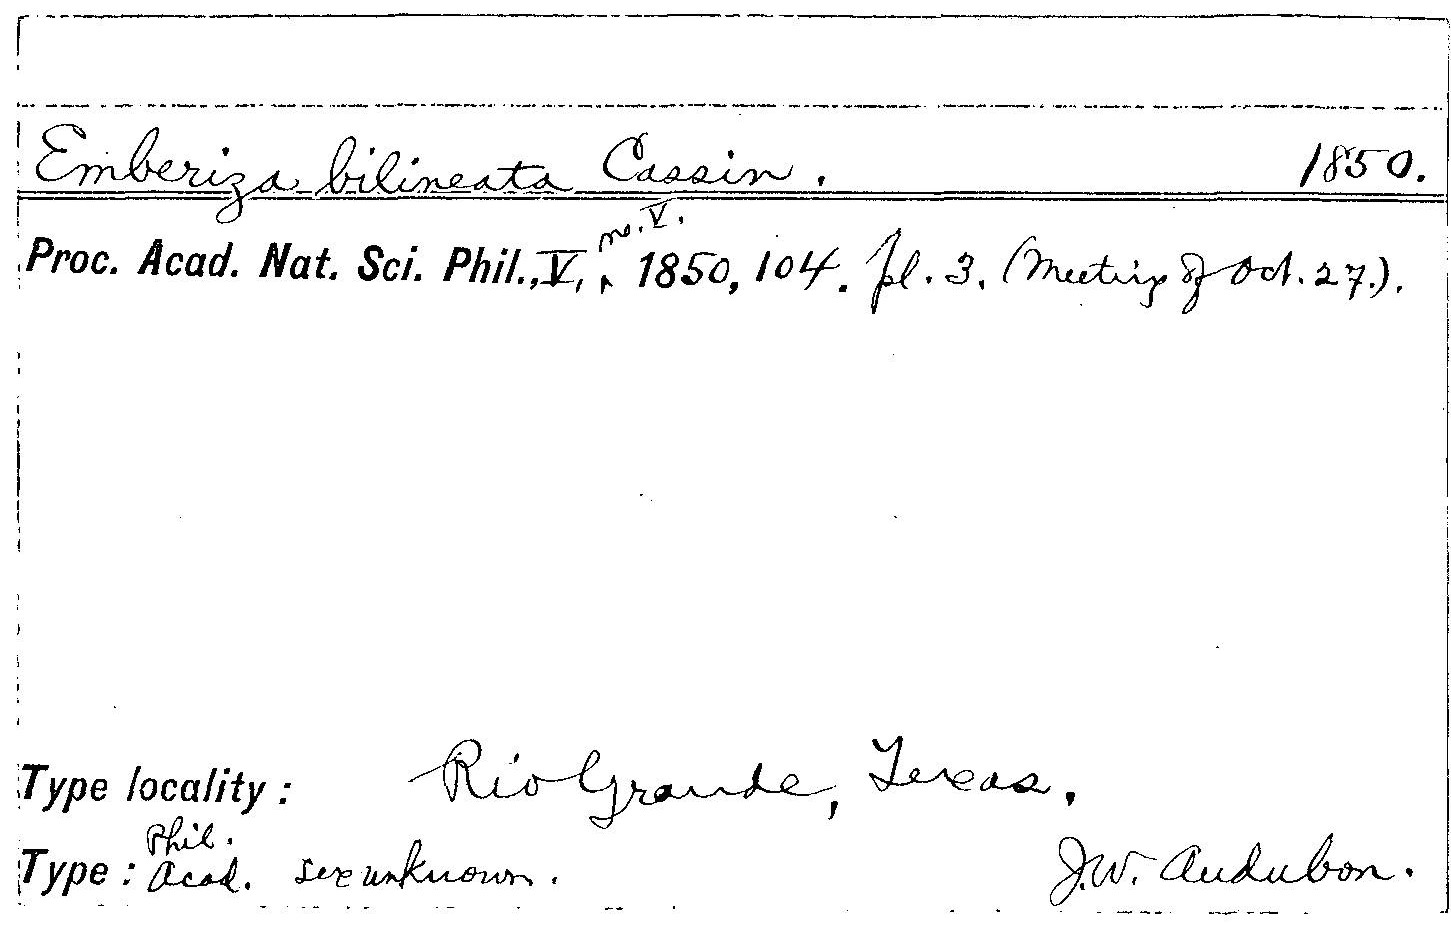 Emberiza bilineata Cassin. 1850.
no. V.
Proc. Acad. Nat. Sci. Phil., V, ‸ 1850, 104. pl. 3. (Meeting of Oct. 27.).
Type locality: Rio Grande, Texas.
Phil.
Type: Acad. sex unknown. J.W. Audubon.